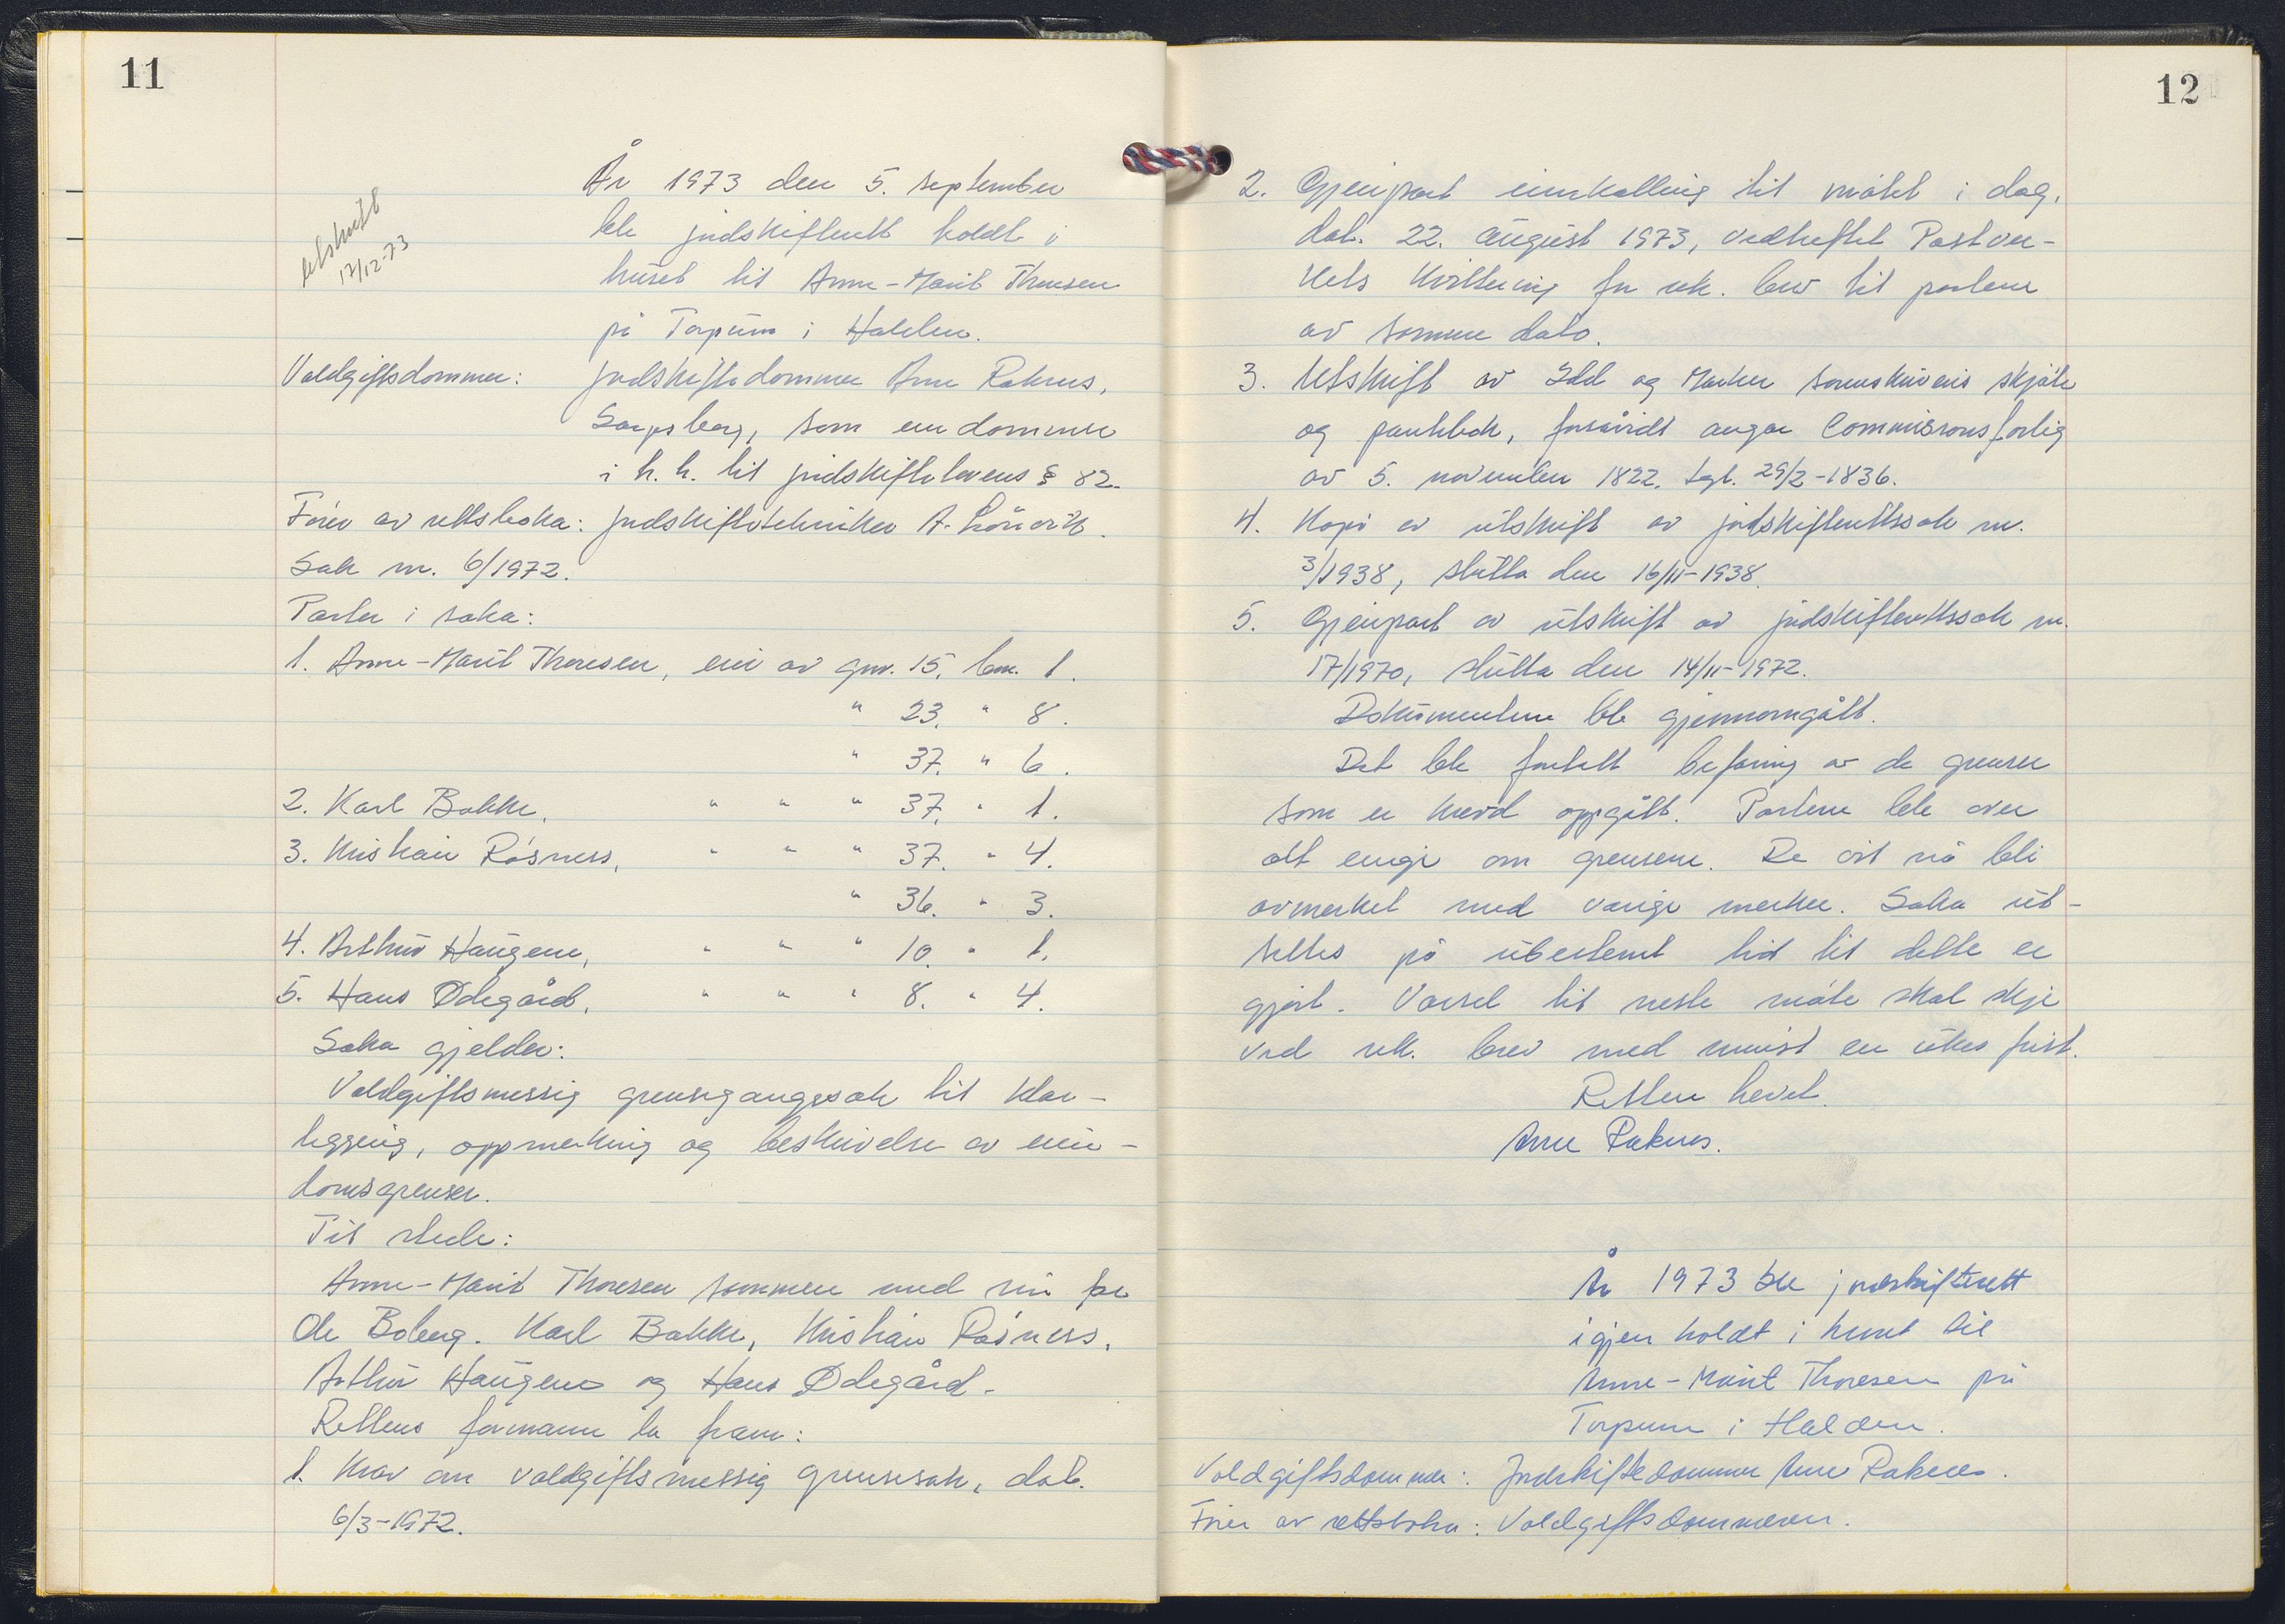 11
År 1973 den 5. september
ble jordskifterett holdt i
huset til Anne-Marit Thoresen
på Torpum i Halden.
Utskrift
17/12-73
Voldgiftsdommer: Jordskiftedommer Arne Raknes,
Sarpsborg, som enedommer
i h.h. til jordskiftelovens § 82.
Fører av rettsboka: Jordskiftetekniker A. Lönvik.
Sak nr. 6/1972.
Parter i saka:
1. Anne-Marit Thoresen, eier av gnr. 15, bnr. 1.
" 23. " 8.
" 37. " 6.
2. Karl Bakke, " " " 37. " 1.
3. Kristian Råsness, " " " 37. " 4.
" 36. " 3.
4. Arthur Haugene, " " " 10. " 1.
5. Hans Ødegård, " " " 8. " 4.
Saka gjelder:
Voldgiftsmessig grensegangssak til klar-
legging, oppmerking og beskrivelse av eien-
domsgrenser.
Til stede:
Anne-Marit Thoresen sammen med sin far
Ole Boberg. Karl Bakke, Kristian Råsness,
Arthur Haugene og Hans Ødegård.
Rettens formann la fram:
1. Krav om voldgiftsmessig grensesak, dat.
6/3-1972.
12
2. Gjenpart innkalling til møtet i dag,
dat. 22. august 1973, vedheftet Postver-
kets kvittering for rek. brev til partene
av samme dato.
3. Utskrift av Idd og Marker sorenskriveris skjøte
og pantebok, forsåvidt angår Commisionsforlig
av 5. november 1822, tgl. 29/2-1836.
4. Kopi av utskrift av jordskifterettssak nr.
3/1938, slutta den 16/11-1938.
5. Gjenpart av utskrift av jordskifterettssak nr.
17/1970, slutta den 14/11-1972.
Dokumentene ble gjennomgått.
Det ble foretatt befaring av de grenser
som er krevd oppgått. Partene ble over
alt enige om grensene. De vil nå bli
avmerket med varige merker. Saka ut-
settes på ubestemt tid til dette er
gjort. Varsel til neste møte skal skje
ved rek. brev med minst en ukes frist.
Retten hevet.
Arne Raknes.
År 1973 ble jordskifterett
igjen holdt i huset til
Anne-Marit Thoresen på
Torpum i Halden.
Voldgiftsdommer: Jordskiftedommer Arne Raknes.
Fører av rettsboka: Voldgiftsdommeren.